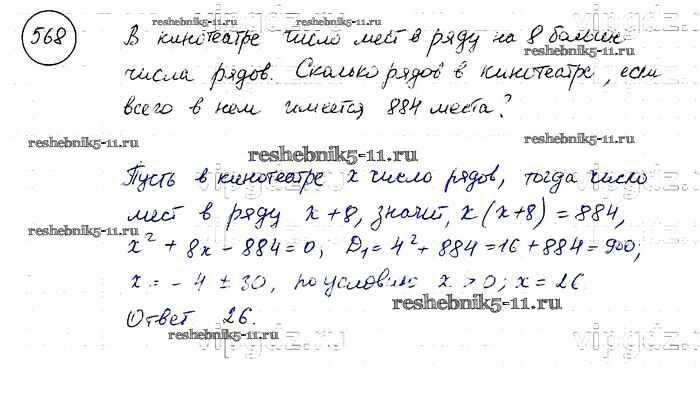 568
В кинотеатре число мест в ряду на 8 больше
числа рядов. Сколько рядов в кинотеатре, если
всего в нем имеется 884 места?
reshebnik5-11.ru
reshebnik5-11.ru
reshebnik5-11.ru
reshebnik5-11.ru
vipgdz.ru
Пусть в кинотеатре x число рядов, тогда число
мест в ряду x+8, значит, x(x+8)=884,
reshebnik5-11.ru
x² + 8x - 884 = 0, D₁ = 4² + 884 = 16 + 884 = 900;
x = - 4 ± 30, по условию x > 0; x = 26.
reshebnik5-11.ru
Ответ 26.
reshebnik5-11.ru
vipgdz.ru